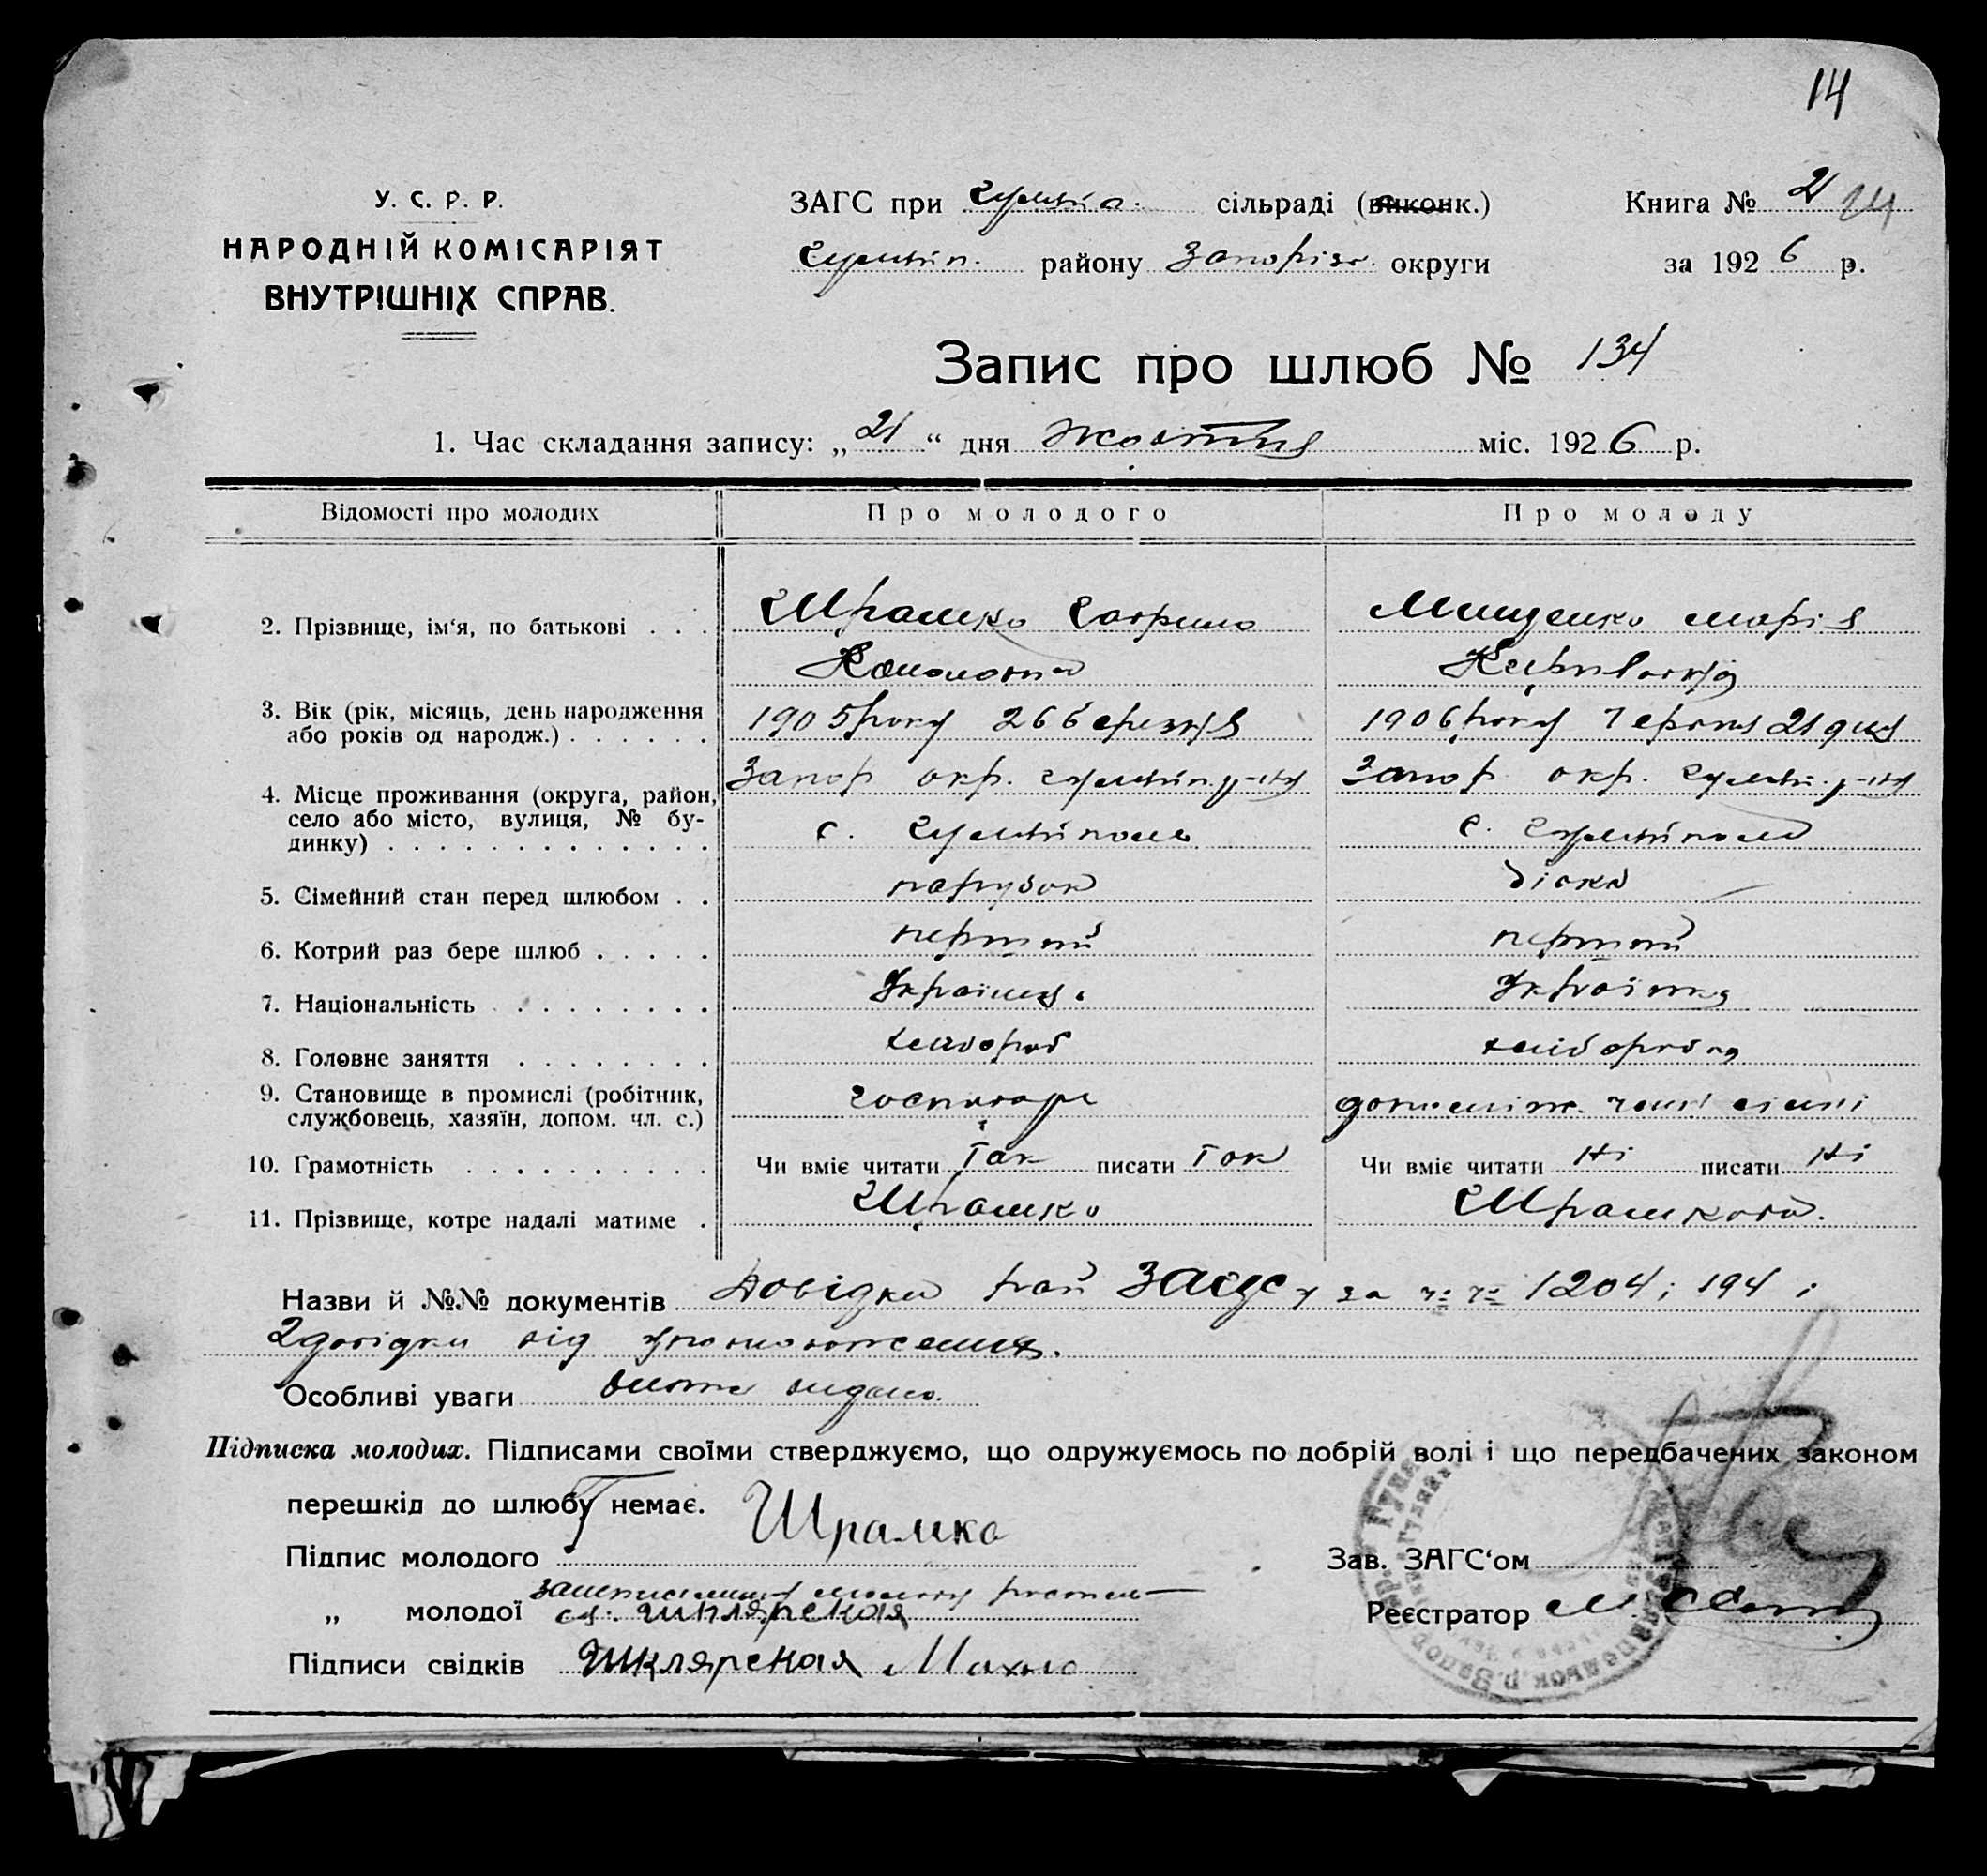 14
У. С. Р. Р.
НАРОДНІЙ КОМІСАРІЯТ
ВНУТРІШНІХ СПРАВ.
ЗАГС при Гуляйп. сільраді (виконк.) Книга № 2
Гуляйпіл. району Запоріз. округи за 1926 р.
Запис про шлюб № 134
1. Час складання запису: „21“ дня жовтня міс. 1926 р.
Відомості про молодих Про молодого Про молоду
2. Прізвище, ім‘я, по батькові . . . Шрамко Гаврило Мищенко Марія
3. Вік (рік, місяць, день народження 1905 року 26 березня 1906 року Червня 21 дня
або років од народж.) . . . . . .
Запор окр. Гуляйпіл. р-ну Запор окр. Гуляйпі. р-ну
4. Місце проживання (округа, район,
село або місто, вулиця, № бу-
динку) . . . . . . . . . . . . . . с. Гуляйполе с. Гуляйполе
5. Сімейний стан перед шлюбом . . парубок дівка
6. Котрий раз бере шлюб . . . . . перший перший
7. Національність . . . . . . . . Українец. Українка
8. Головне заняття . . . . . . . . хлібороб хліборобка
9. Становище в промислі (робітник,
службовець, хазяїн, допом. чл. с.) господарь член сімї
10. Грамотність . . . . . . . . . . Чи вміє читати Так писати Так Чи вміє читати Ні писати Ні
11. Прізвище, котре надалі матиме . Шрамко Шрамкова.
Назви й №№ документів Довідки рай ЗАГСу за №№ 1204 і 194 і
2 довідки від
Особливі уваги видано.
Підписка молодих. Підписами своїми стверджуємо, що одружуємось по добрій волі і що передбачених законом
перешкід до шлюбу немає.
Підпис молодого Шрамко
Зав. ЗАГС‘ом
„ молодої Шклярская
Реєстратор
Підписи свідків Шклярская Махно